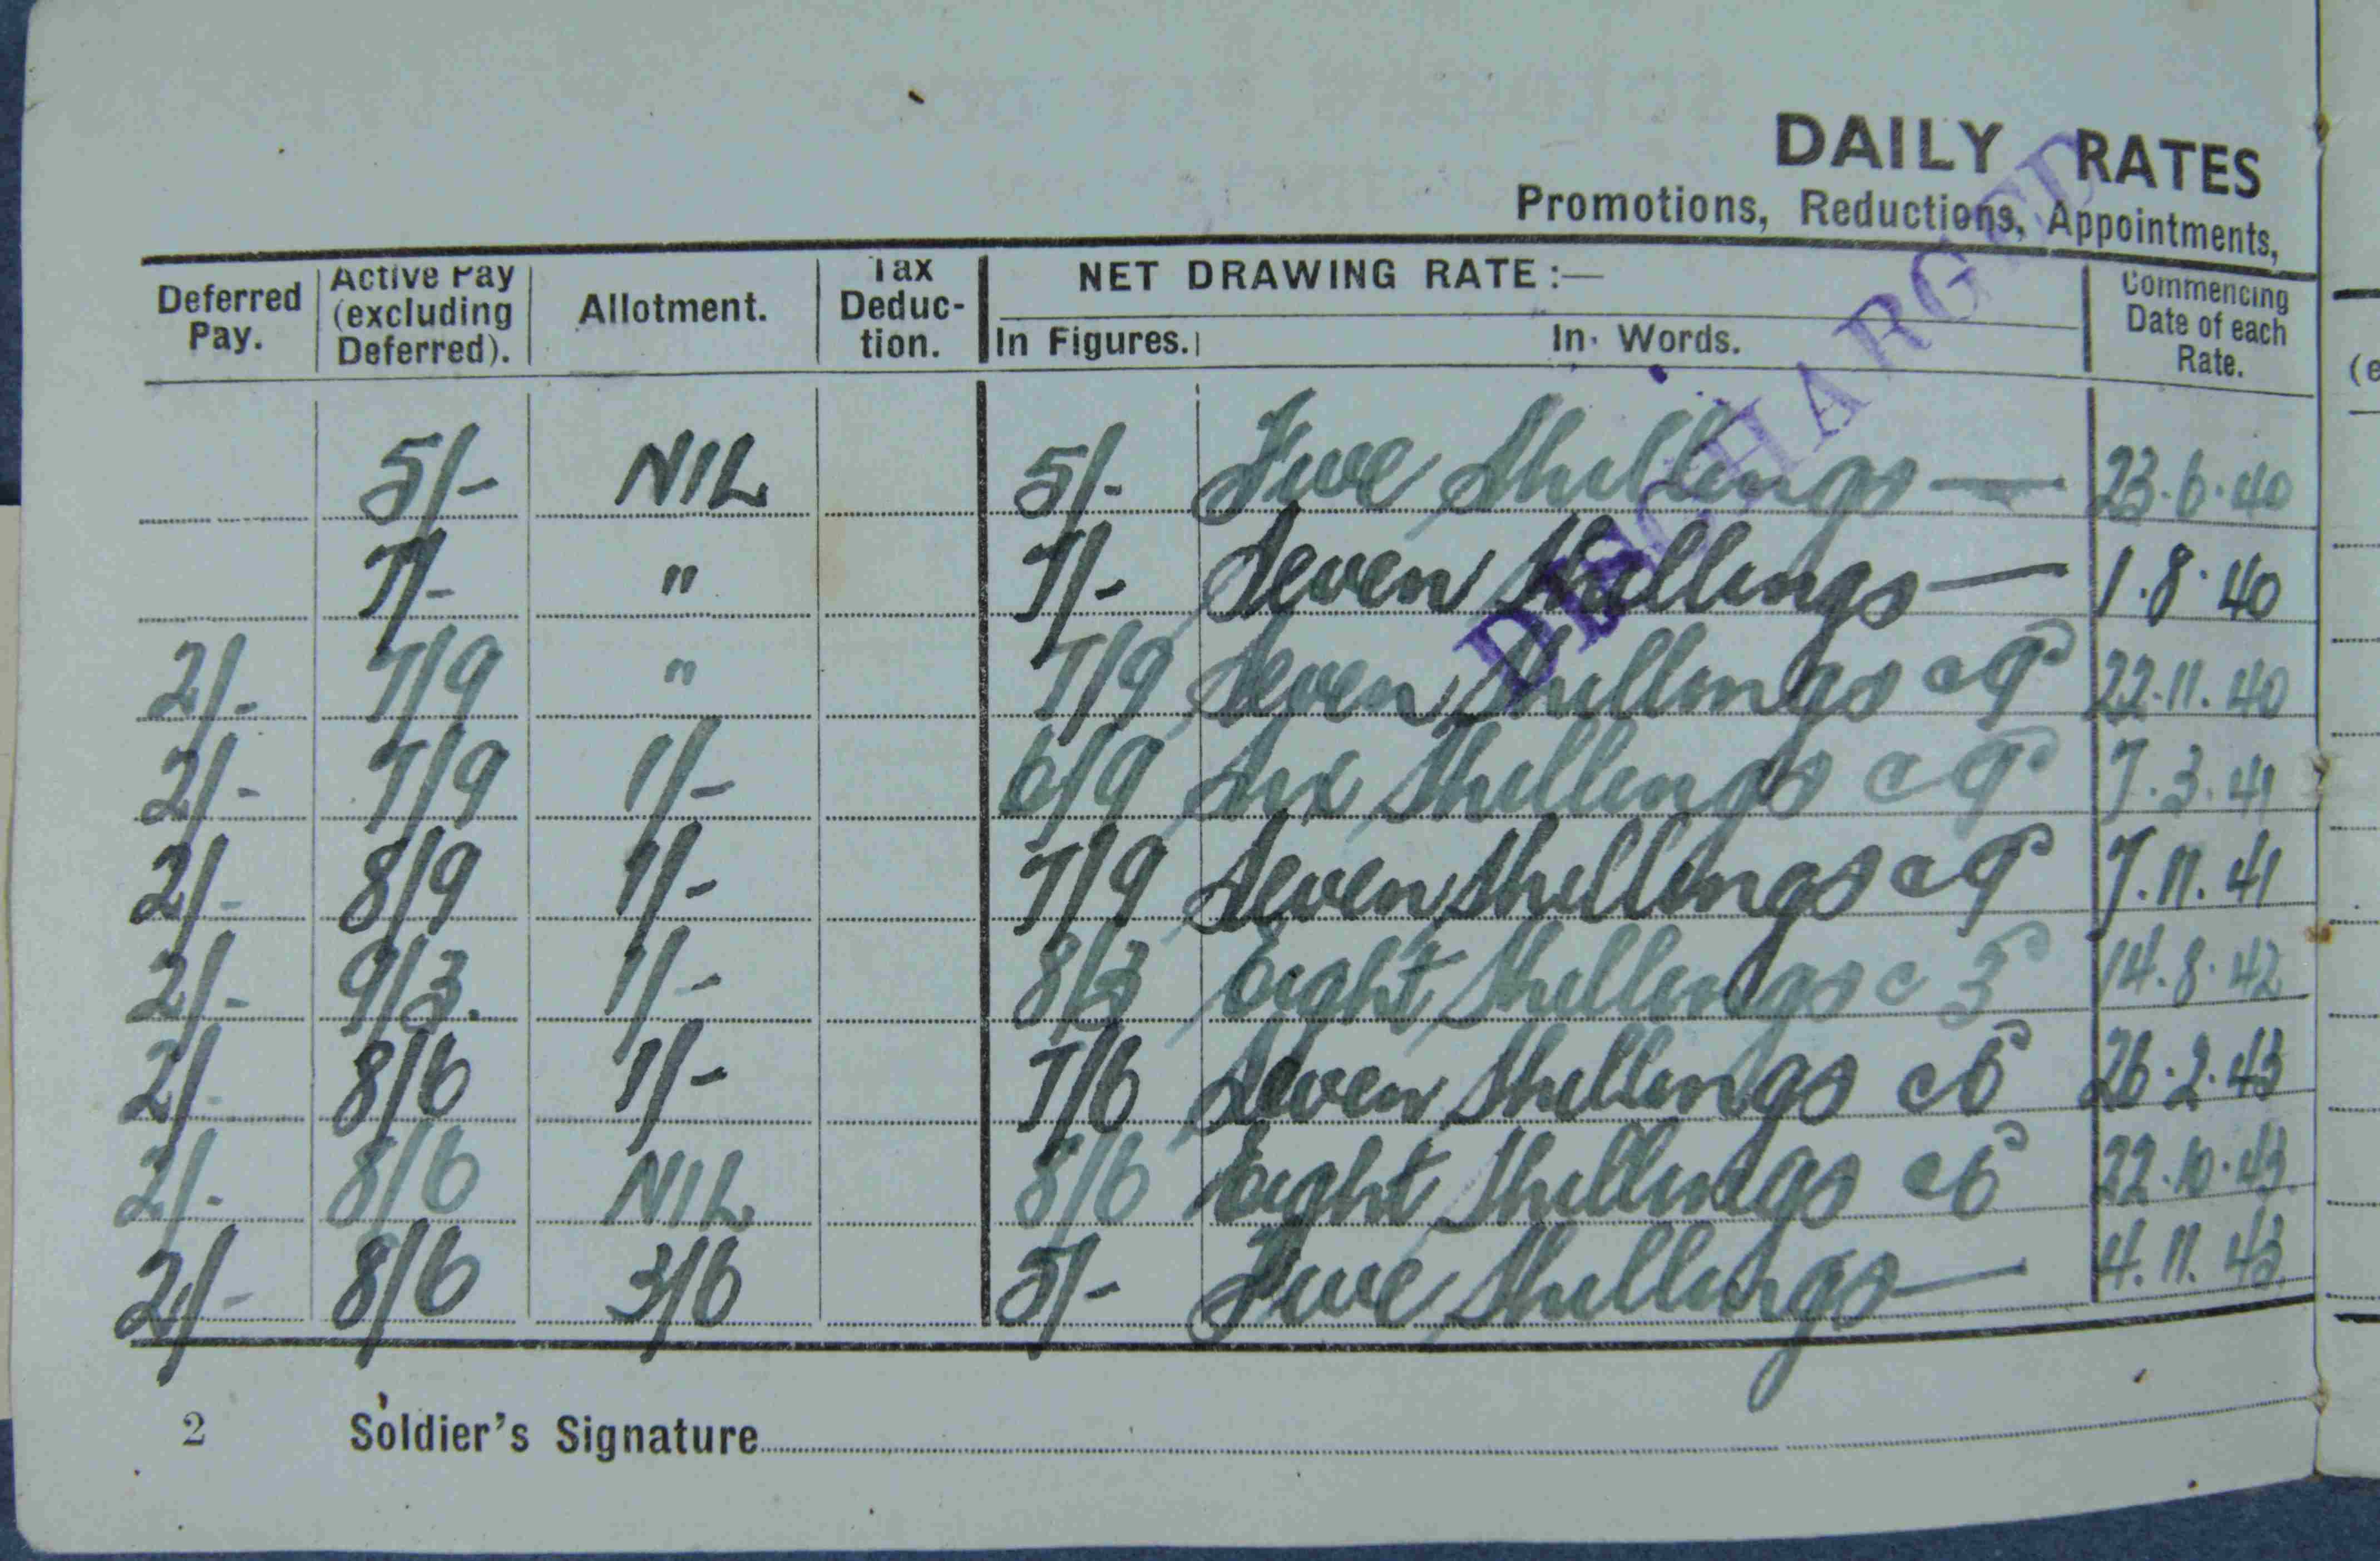 DAILY RATES
Promotions, Reductions, Appointments,
Deferred Pay. Active Pay (excluding Deferred). Allotment. Tax Deduc- tion. NET DRAWING RATE :— In Figures. In Words. Commencing Date of each Rate.
DISCHARGED
5/- NIL 5/- Five Shillings — 23.6.40
7/- " 7/- Seven Shillings — 1.8.40
2/- 7/9 " 7/9 Seven Shillings & 9D 22.11.40
2/- 7/9 1/- 6/9 Six Shillings & 9D 7.3.41
2/- 8/9 1/- 7/9 Seven Shillings & 9D 7.11.41
2/- 9/3. 1/- 8/3 Eight Shillings & 3D 14.8.42
2/- 8/6 1/- 7/6 Seven Shillings & 6D 26.2.43
2/- 8/6 NIL 8/6 Eight Shillings & 6D 22.10.43
2/- 8/6 3/6 5/- Five Shillings — 4.11.43
2 Soldier's Signature
(e